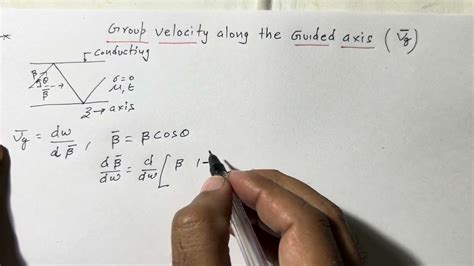 * Group velocity along the Guided axis (v̄g)
conducting
β
θ
β̄
σ=0
μ, ε
z → axis
v̄g = dω/dβ̄ , β̄ = β cosθ
dβ̄/dω = d/dω [ β 1-